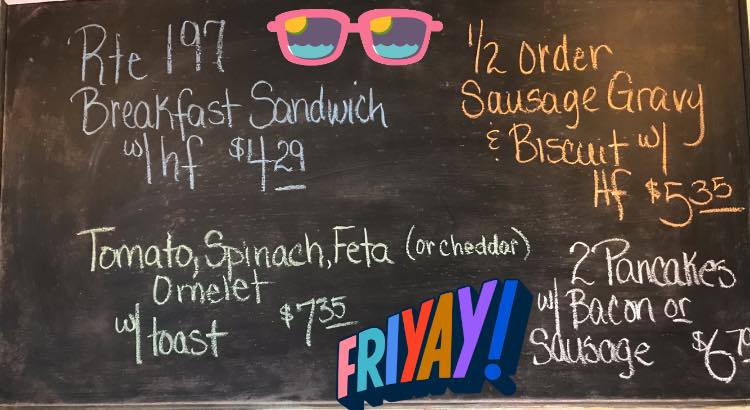 Rte 197
Breakfast Sandwich
w/ hf $4.29
1/2 order
Sausage Gravy
& Biscuit w/
Hf $5.35
Tomato, Spinach, Feta (or cheddar)
Omelet
w/ toast $7.35
FRIYAY!
2 Pancakes
w/ Bacon or
Sausage